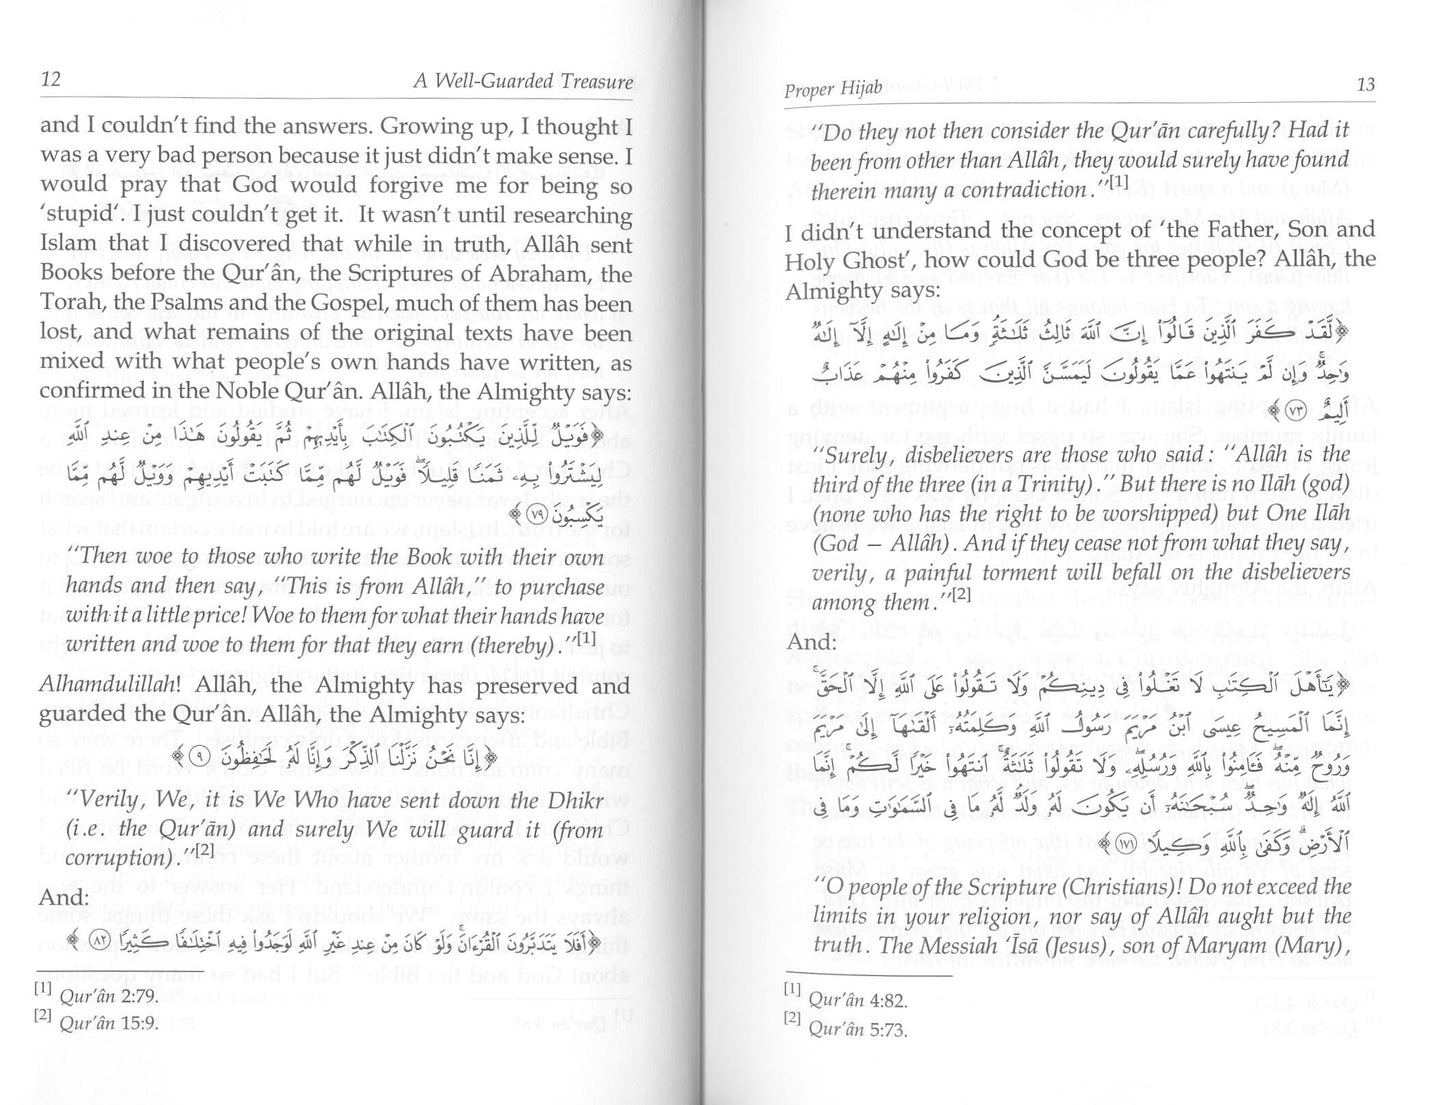 12
A Well-Guarded Treasure
and I couldn't find the answers. Growing up, I thought I
was a very bad person because it just didn't make sense. I
would pray that God would forgive me for being so
'stupid'. I just couldn't get it. It wasn't until researching
Islam that I discovered that while in truth, Allâh sent
Books before the Qur'ân, the Scriptures of Abraham, the
Torah, the Psalms and the Gospel, much of them has been
lost, and what remains of the original texts have been
mixed with what people's own hands have written, as
confirmed in the Noble Qur'ân. Allâh, the Almighty says:
﴿فَوَيْلٌ لِّلَّذِينَ يَكْتُبُونَ ٱلْكِتَٰبَ بِأَيْدِيهِمْ ثُمَّ يَقُولُونَ هَٰذَا مِنْ عِندِ ٱللَّهِ
لِيَشْتَرُوا۟ بِهِۦ ثَمَنًا قَلِيلًا ۖ فَوَيْلٌ لَّهُم مِّمَّا كَتَبَتْ أَيْدِيهِمْ وَوَيْلٌ لَّهُم مِّمَّا
يَكْسِبُونَ ٧٩﴾
"Then woe to those who write the Book with their own
hands and then say, "This is from Allâh," to purchase
with it a little price! Woe to them for what their hands have
written and woe to them for that they earn (thereby)."[1]
Alhamdulillah! Allâh, the Almighty has preserved and
guarded the Qur'ân. Allâh, the Almighty says:
﴿إِنَّا نَحْنُ نَزَّلْنَا ٱلذِّكْرَ وَإِنَّا لَهُۥ لَحَٰفِظُونَ ٩﴾
"Verily, We, it is We Who have sent down the Dhikr
(i.e. the Qur'ān) and surely We will guard it (from
corruption)."[2]
And:
﴿أَفَلَا يَتَدَبَّرُونَ ٱلْقُرْءَانَ ۚ وَلَوْ كَانَ مِنْ عِندِ غَيْرِ ٱللَّهِ لَوَجَدُوا۟ فِيهِ ٱخْتِلَٰفًا كَثِيرًا ٨٢﴾
[1] Qur'ân 2:79.
[2] Qur'ân 15:9.
Proper Hijab
13
"Do they not then consider the Qur'ān carefully? Had it
been from other than Allâh, they would surely have found
therein many a contradiction."[1]
I didn't understand the concept of 'the Father, Son and
Holy Ghost', how could God be three people? Allâh, the
Almighty says:
﴿لَّقَدْ كَفَرَ ٱلَّذِينَ قَالُوٓا۟ إِنَّ ٱللَّهَ ثَالِثُ ثَلَٰثَةٍ ۘ وَمَا مِنْ إِلَٰهٍ إِلَّآ إِلَٰهٌ
وَٰحِدٌ ۚ وَإِن لَّمْ يَنتَهُوا۟ عَمَّا يَقُولُونَ لَيَمَسَّنَّ ٱلَّذِينَ كَفَرُوا۟ مِنْهُمْ عَذَابٌ
أَلِيمٌ ٧٣﴾
"Surely, disbelievers are those who said: "Allâh is the
third of the three (in a Trinity)." But there is no Ilāh (god)
(none who has the right to be worshipped) but One Ilāh
(God – Allâh). And if they cease not from what they say,
verily, a painful torment will befall on the disbelievers
among them."[2]
And:
﴿يَٰٓأَهْلَ ٱلْكِتَٰبِ لَا تَغْلُوا۟ فِى دِينِكُمْ وَلَا تَقُولُوا۟ عَلَى ٱللَّهِ إِلَّا ٱلْحَقَّ ۚ
إِنَّمَا ٱلْمَسِيحُ عِيسَى ٱبْنُ مَرْيَمَ رَسُولُ ٱللَّهِ وَكَلِمَتُهُۥٓ أَلْقَىٰهَآ إِلَىٰ مَرْيَمَ
وَرُوحٌ مِّنْهُ ۖ فَـَٔامِنُوا۟ بِٱللَّهِ وَرُسُلِهِۦ ۖ وَلَا تَقُولُوا۟ ثَلَٰثَةٌ ۚ ٱنتَهُوا۟ خَيْرًا لَّكُمْ ۚ إِنَّمَا
ٱللَّهُ إِلَٰهٌ وَٰحِدٌ ۖ سُبْحَٰنَهُۥٓ أَن يَكُونَ لَهُۥ وَلَدٌ ۘ لَّهُۥ مَا فِى ٱلسَّمَٰوَٰتِ وَمَا فِى
ٱلْأَرْضِ ۗ وَكَفَىٰ بِٱللَّهِ وَكِيلًا ١٧١﴾
"O people of the Scripture (Christians)! Do not exceed the
limits in your religion, nor say of Allâh aught but the
truth. The Messiah 'Īsā (Jesus), son of Maryam (Mary),
[1] Qur'ân 4:82.
[2] Qur'ân 5:73.